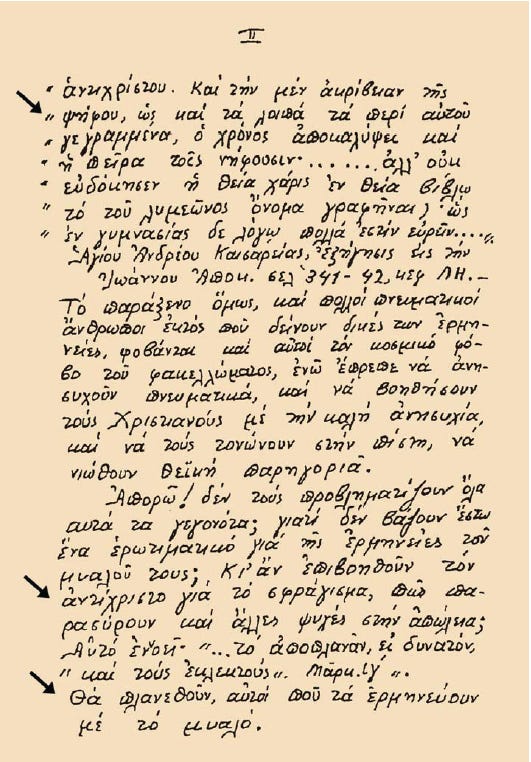 II
" ἀντιχρίστου. Καί τήν μέν ἀκρίβειαν τῆς
" ψήφου, ὡς καί τά λοιπά τά περί αὐτοῦ
" γεγραμμένα, ὁ χρόνος ἀποκαλύψει καί
" ἡ πεῖρα τοῖς νήφουσιν....... ἀλλ' οὐκ
" εὐδόκησεν ἡ θεία χάρις ἐν θεία βίβλω
" τό τοῦ λυμεῶνος ὄνομα γραφῆναι; ὡς
" ἐν γυμνασίας δε λόγω πολλά ἐστίν εὑρεῖν...."
Ἁγίου Ἀνδρίου Καισαρείας, ἐξήγησις εἰς τήν
Ἰωάννου Ἀποκ. σελ 341-42, κεφ ΛΗ.-
Τό παράξενο ὅμως, καί πολλοί πνευματικοί
ἄνθρωποι ἐκτός πού δείνουν δικές των ἑρμη-
νείες, φοβάνται καί αὐτοί τόν κοσμικό φό-
βο τοῦ φακελλώματος, ἐνῶ ἔπρεπε νά ἀνη-
συχοῦν πνευματικά, καί νά βοηθήσουν
τούς Χριστιανούς μέ τήν καλή ἀνησυχία,
καί νά τούς τονώνουν στήν πίστη, νά
νιώθουν θεϊκή παρηγοριά.
Ἀπορῶ! δέν τούς προβληματίζουν ὅλα
αὐτά τα γεγονότα; γιατί δέν βάζουν ἔστω
ἕνα ἐρωτιματικό γιά τῆς ἑρμηνείες τοῦ
μυαλοῦ τους; Κι' ἄν ἐπιβοηθοῦν τόν
ἀντίχριστο γιά τό σφράγισμα, πῶς πα-
ρασύρουν καί ἄλλες ψυχές στήν ἀπώλεια;
Αὐτό ἐνοεῖ· "...τό ἀποπλανᾶν, εἰ δυνατόν,
" καί τούς ἐκλεκτούς". Μάρκ. ιγ'".
Θά πλανεθοῦν, αὐτοί πού τά ἑρμηνεύουν
μέ τό μυαλό.